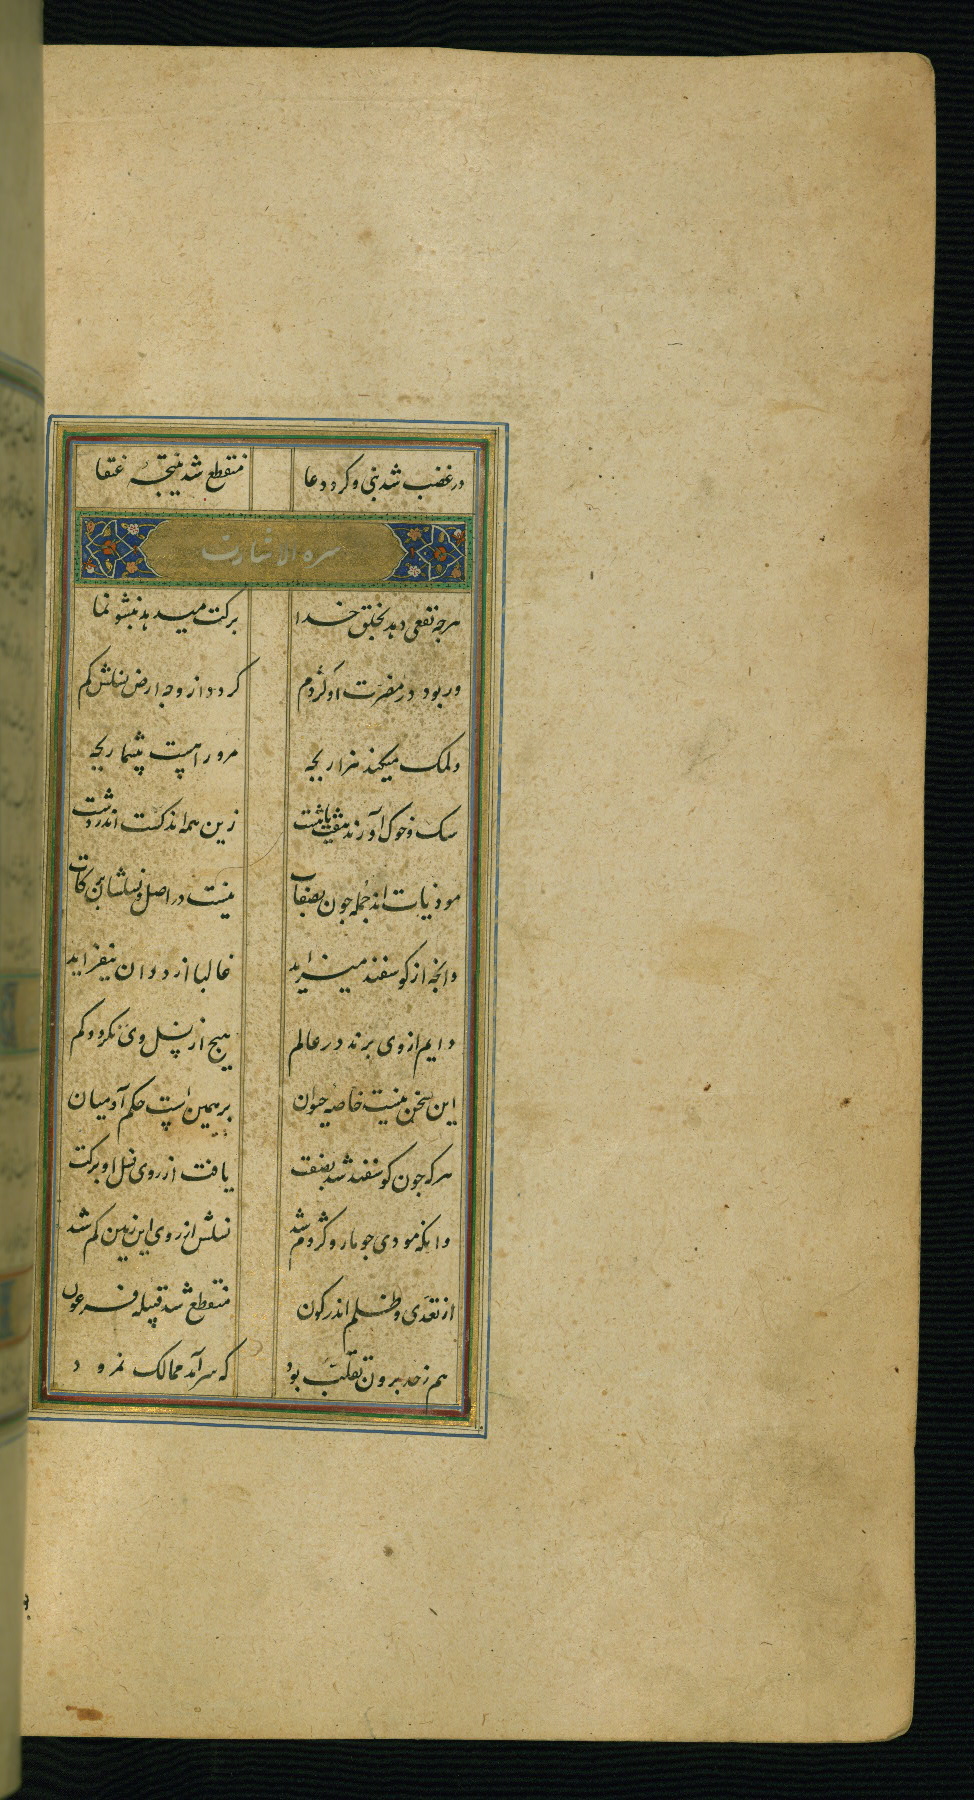 در غضب شد نبی و کرد دعا منقطع شد نتیجهٔ عنقا
سره الاشارت
هرچه نفعی دهد بخلق خدا برکت میدهد بنشو نما
ور بود در مضرت او کژدم کردد از وجه ارض نسلش کم
ولمک میکند هزار بچه مرو راهست پشمار بچه
سک و خوک آورند هفت یا هشت زین همه اندکست اندر دشت
موذیات اند جمله چون بصفات نیست در اصل و نسلشان برکات
وانچه از کوسفند میزاید غالبا از دو وان نیفزاید
دایم از وی برند در عالم هیچ از نسل وی نکردد کم
این سخن نیست خاصه حیوان بر همین است حکم آدمیان
هرکه چون کوسفند شد بصفت یافت از روی نسل او برکت
وانکه موذی چو مار و کژدم شد نسلش از روی این زمین کم شد
از تعدی و ظلم اندر کون منقطع شد قبیله فرعون
هم ز حد برون تقلب بود که سرآمد ممالک نمرود